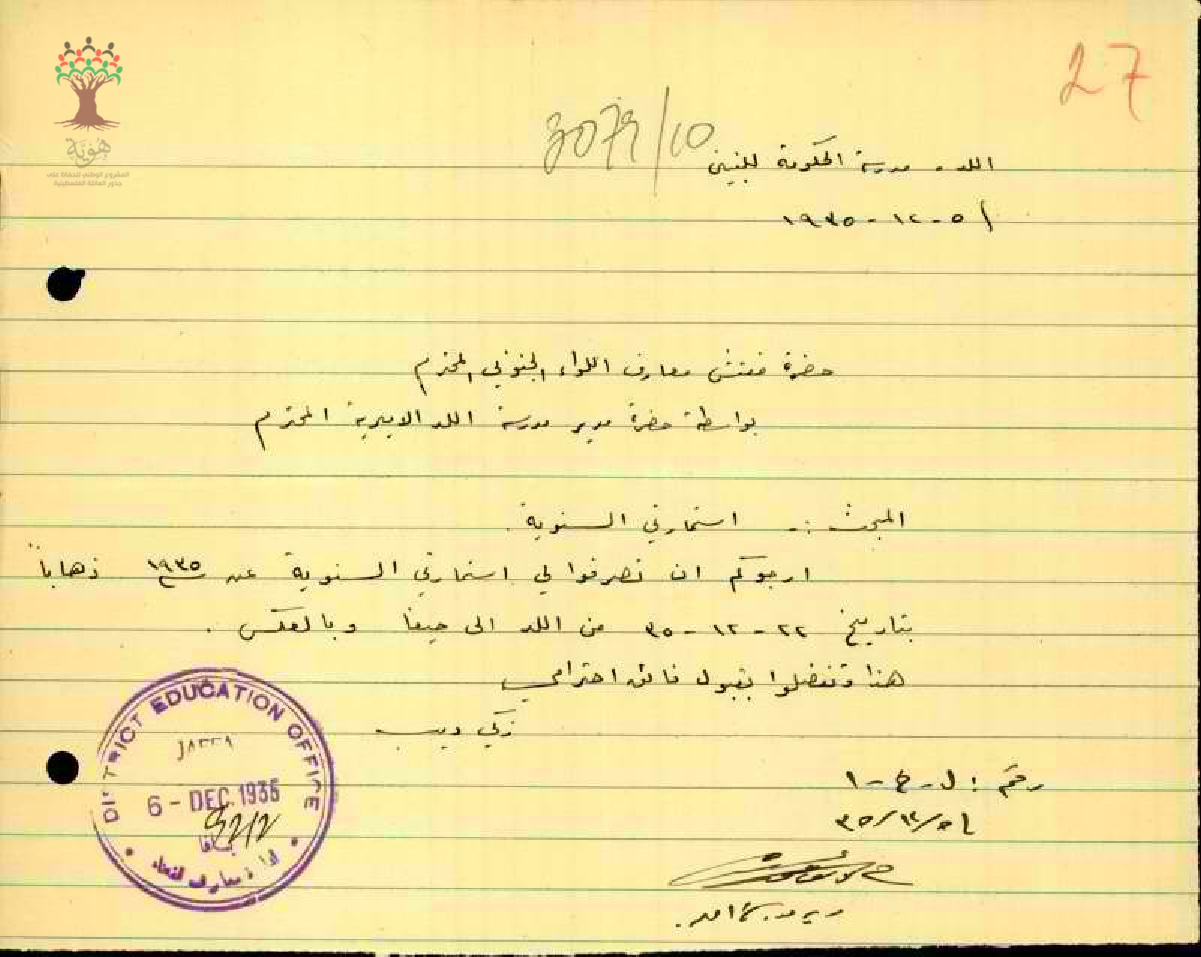 27
3079/10
هُويَّة
المشروع الوطني للحفاظ على
جذور العائلة الفلسطينية
اللد - مدرسة الحكومة للبنين
٥ - ١٢ - ١٩٣٥
حضرة مفتش معارف اللواء الجنوبي المحترم
بواسطة حضرة مدير مدرسة اللد الاميرية المحترم
المبحث :- استمارتي السنوية.
ارجوكم ان تصرفوا لي استمارتي السنوية عن سنة ١٩٣٥ ذهاباً
بتاريخ ٢٢ - ١٢ - ٣٥ من اللد الى حيفا وبالعكس .
هذا وتفضلوا بقبول فائق احترامي
زكي ديب
رقم : ل - خ - ١
٥/١٢/٣٥
DISTRICT EDUCATION OFFICE
JAFFA
6 - DEC. 1935
يافا